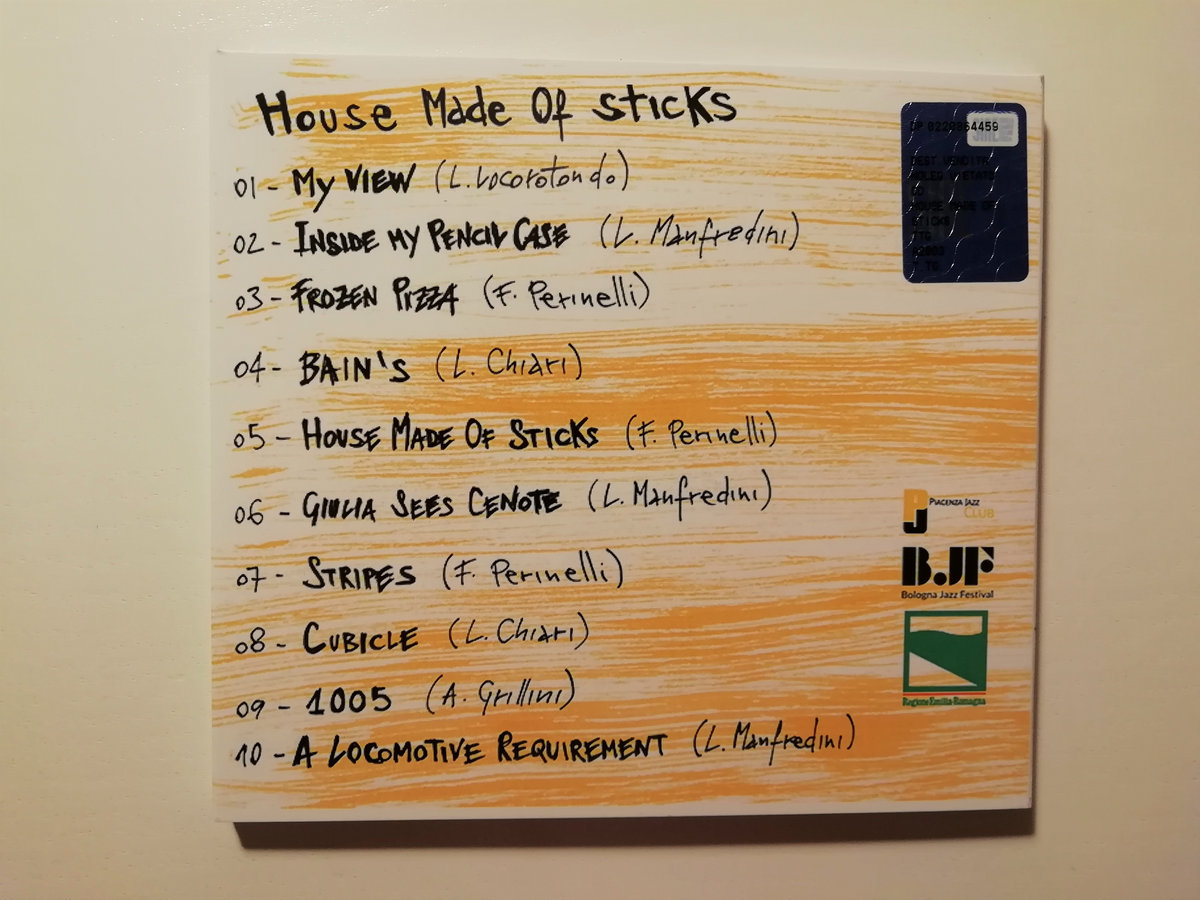 House Made Of Sticks
01 - My View (L. Locorotondo)
02 - Inside My Pencil Case (L. Manfredini)
03 - Frozen Pizza (F. Perinelli)
04 - Bain's (L. Chiari)
05 - House Made Of Sticks (F. Perinelli)
06 - Giulia Sees Cenote (L. Manfredini)
07 - Stripes (F. Perinelli)
08 - Cubicle (L. Chiari)
09 - 1005 (A. Grillini)
10 - A Locomotive Requirement (L. Manfredini)
4459
HOUSE MADE OF
STICKS
PJ
Piacenza Jazz
Club
BJF
Bologna Jazz Festival
Regione Emilia-Romagna